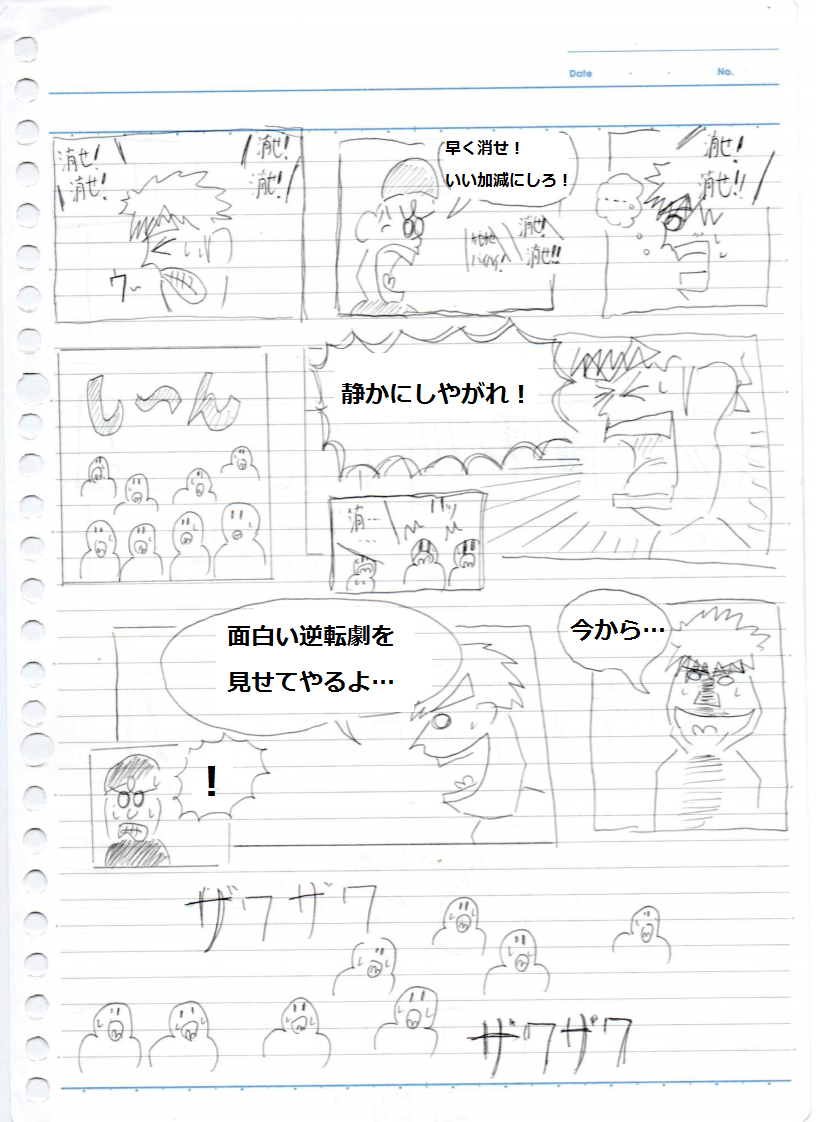 Date
No.
消せ!
消せ!!
早く消せ!
いい加減にしろ!
消せ!
消せ!!
消せ!
消せ!
消せ!
消せ!
ウ〜
静かにしやがれ!
消…
し〜ん
今から…
面白い逆転劇を
見せてやるよ…
!
ザワザワ
ザワザワ